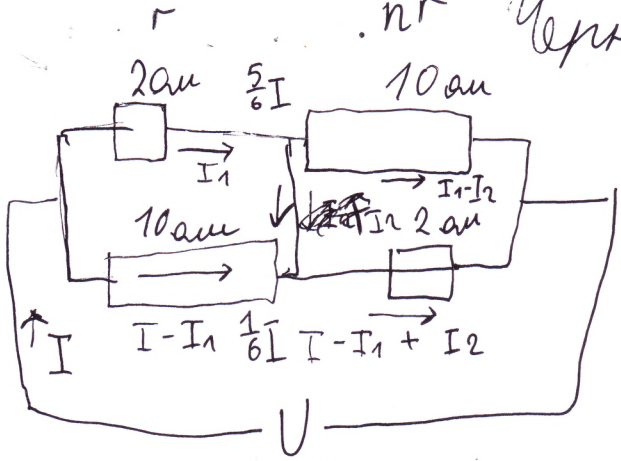 r nr Черн
2 ом 5/6 I 10 ом
I₁ I₁-I₂
10 ом I₂ 2 ом
I I-I₁ 1/6 I I-I₁ + I₂
U